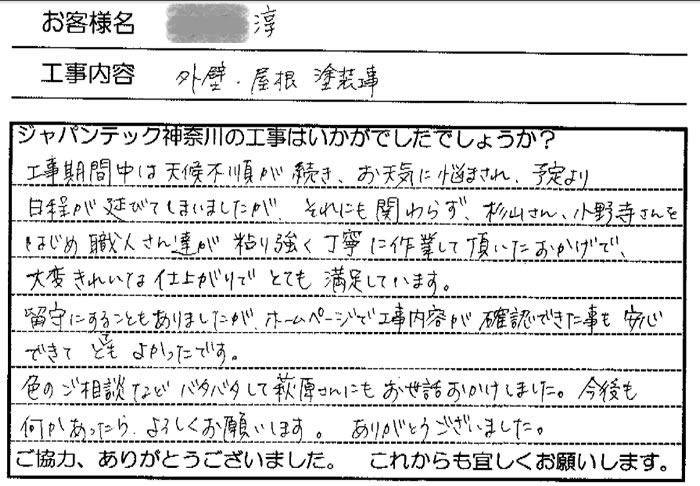 お客様名 淳
工事内容 外壁・屋根 塗装工事
ジャパンテック神奈川の工事はいかがでしたでしょうか？
工事期間中は天候不順が続き、お天気に悩まされ、予定より
日程が延びてしまいましたが、それにも関わらず、杉山さん、小野寺さんを
はじめ職人さん達が粘り強く丁寧に作業して頂いたおかげで、
大変きれいな仕上がりでとても満足しています。
留守にすることもありましたが、ホームページで工事内容が確認できた事も安心
できてとてもよかったです。
色のご相談などバタバタして萩原さんにもお世話おかけしました。今後も
何かあったら、よろしくお願いします。ありがとうございました。
ご協力、ありがとうございました。 これからも宜しくお願いします。